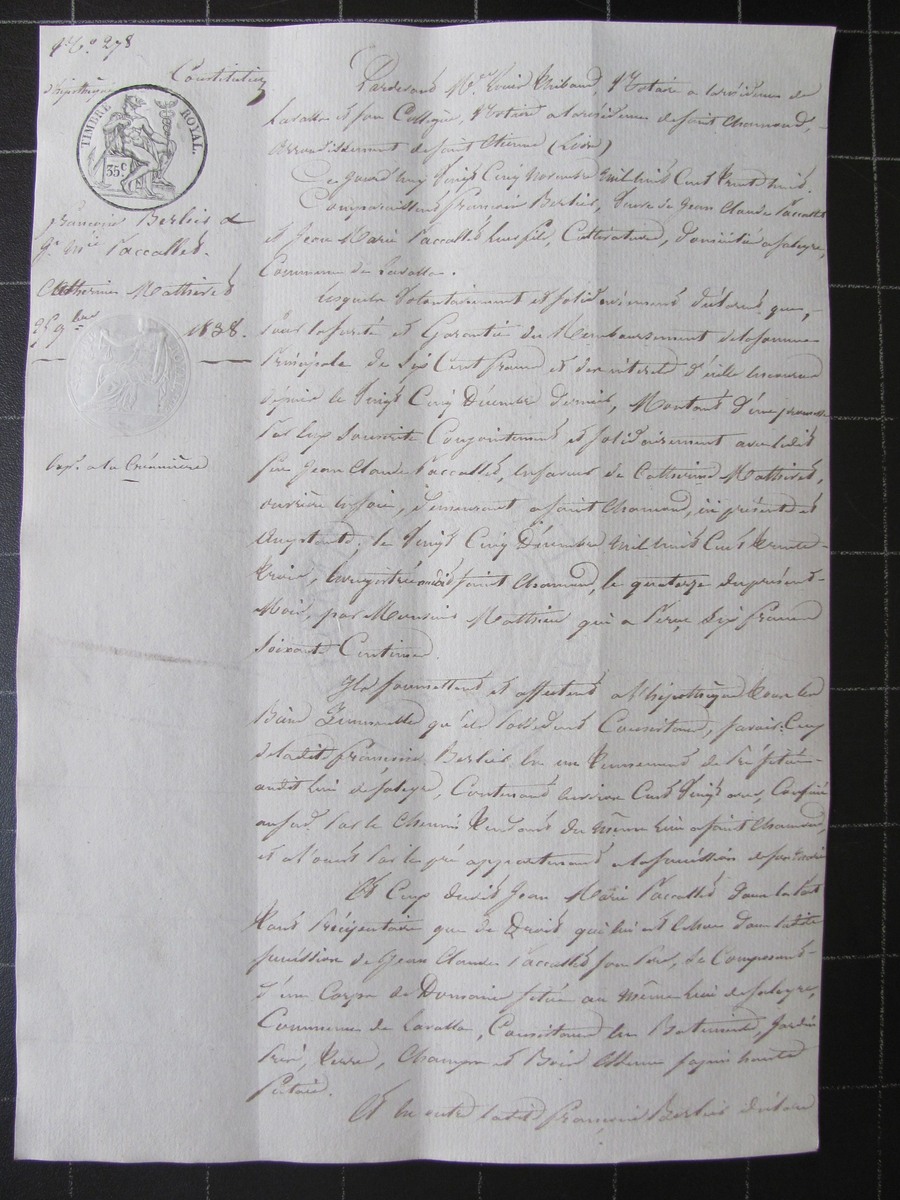 N.o 278
Constitution
d'hipothèque
TIMBRE ROYAL.
35c
françoise Berlier &
Jn Mie Paccallet.
Catherine Mathevet
25 9bre 1838.
Exp. a la Créancière
Pardevant Me Louis, Notaire a la résidence de
Lavalla et son Collègue, Notaire a la résidence de saint chamond,
arrondissement de saint Etienne (Loire)
Ce jourd'huy Vingt Cinq Novembre mil huit Cent trente huit.
Comparaissent françoise Berlier, Veuve de Jean Claude Paccallet
et Jean Marie Paccallet leur fils, Cultivateurs, domiciliés a,
Commune de Lavalla.
Lesquels Volontairement et solidairement déclarent que,
pour la sureté et Garantie du Remboursement de la somme
Principale de Six Cent francs et des interets d'icelle encourus
depuis le Vingt Cinq Décembre dernier, Montant d'une promesse
Par eux Souscrite Conjointement et solidairement avec ledit
feu Jean Claude Paccallet, en faveur de Catherine Mathevet,
ouvrière en soie, demeurant a saint Chamond, ici présente et
acceptante, le Vingt Cinq Décembre mil huit Cent trente
trois, Enregistrée audit saint Chamond, le quatorze du présent
Mois, par Monsieur Mathieu qui a perçu Six francs
soixante Centimes.
Ils soumettent et affectent a l'hipothèque tous les
Biens Immeubles qu'ils possèdent Consistant, savoir: Ceux
de ladite françoise Berlier, en un tènement de Pré situé
audit lieu de, Contenant environ Cent Vingt ares, Confiné
au sud Par le Chemin tendant du même lieu a saint Chamond,
et a l'ouest Par le pré appartenant a la succession de son mari
Et Ceux dudit Jean Marie Paccallet dans la Part
tant Précipuitaire que de Droit qui lui est échue dans ladite
succession de Jean Claude Paccallet son Père, Se Composent
d'un Corps de Domaine situé au même lieu de,
Commune de Lavalla, Consistant en Batiments, Jardin
Pré, terre, Champs et Bois
Et en outre ladite françoise Berlier déclare